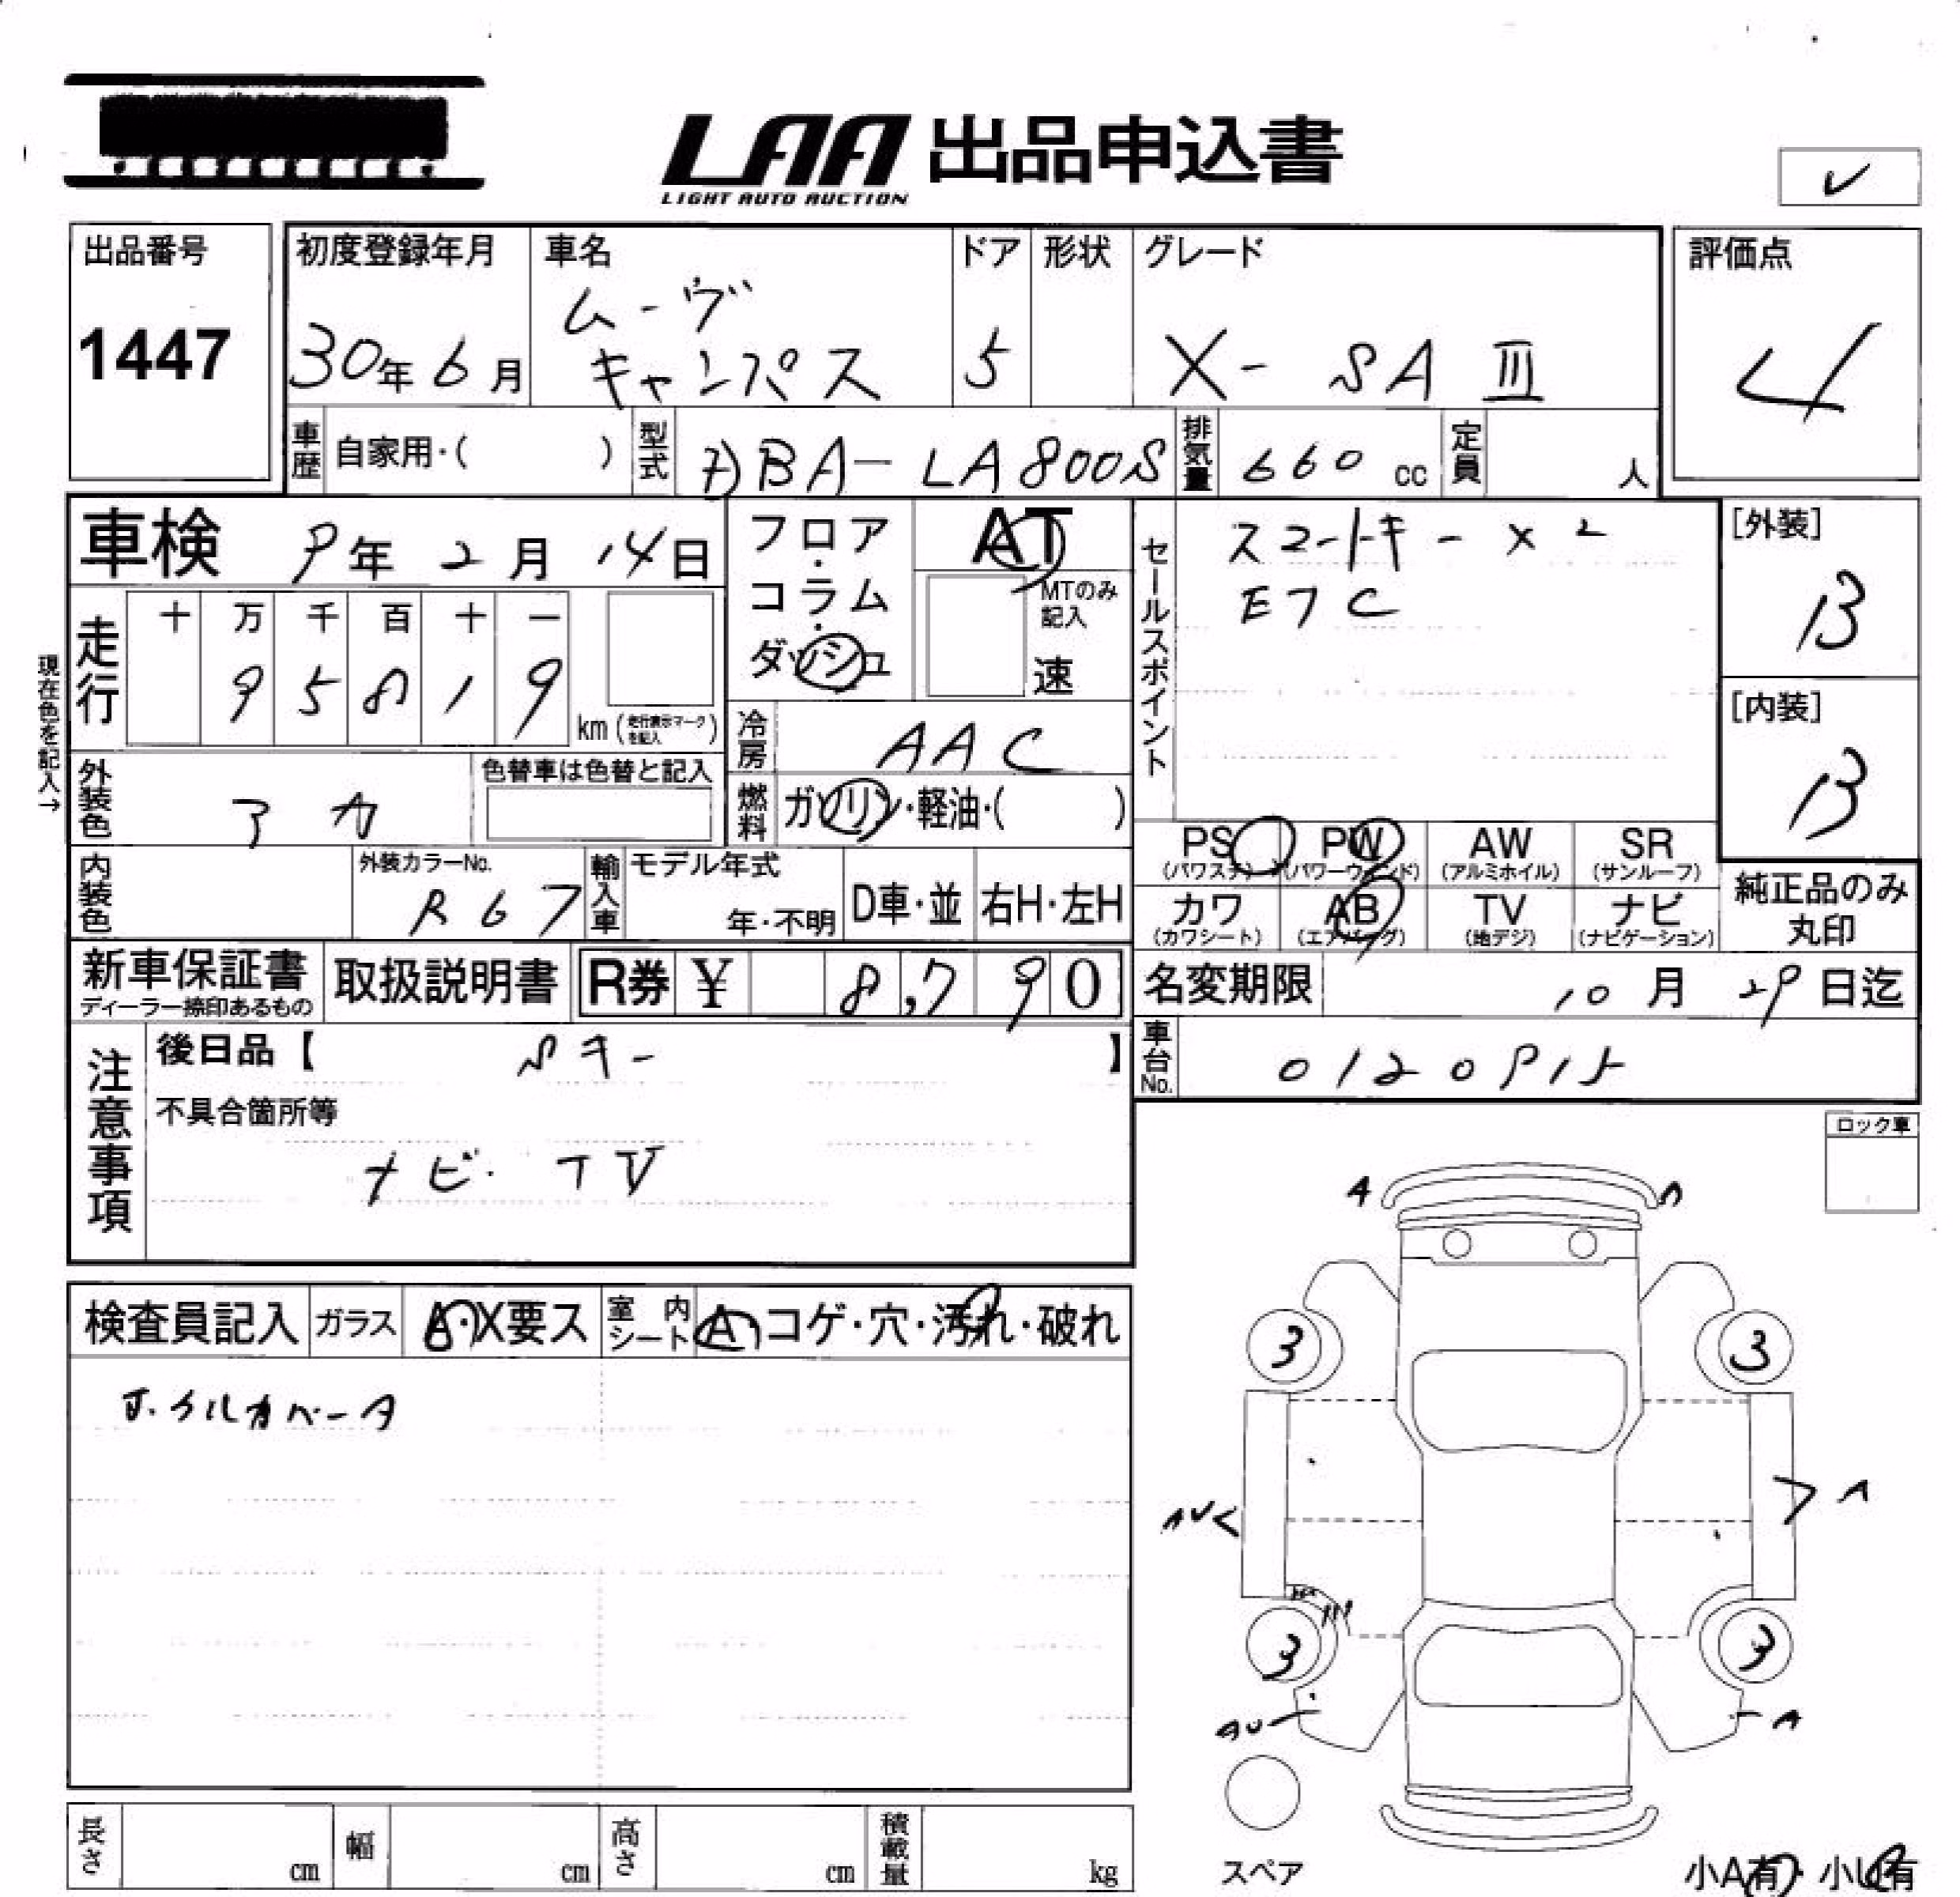 LAA 出品申込書
LIGHT AUTO AUCTION
出品番号
1447
初度登録年月
30年6月
車名
ムーヴ
キャンバス
ドア
5
形状
グレード
X- SA Ⅲ
評価点
4
車歴 自家用・( )
型式 DBA-LA800S
排気量 660 cc
定員 人
車検 9年2月14日
現在色を記入→
走行 十 万 千 百 十 一
9 5 8 1 9
km (走行表示マークを記入)
フロア・コラム・ダッシュ
AT
MTのみ記入
速
冷房 AAC
燃料 ガソリン・軽油・( )
外装色 アカ
色替車は色替と記入
内装色
外装カラーNo.
R67
輸入車
モデル年式
年・不明
D車・並
右H・左H
セールスポイント
スマートキー×2
ETC
[外装]
B
[内装]
B
PS (パワステ)
PW (パワーウィンド)
AW (アルミホイル)
SR (サンルーフ)
カワ (カワシート)
AB (エアバッグ)
TV (地デジ)
ナビ (ナビゲーション)
純正品のみ
丸印
新車保証書
ディーラー捺印あるもの
取扱説明書
R券 ¥ 8,790
名変期限 10月29日迄
車台No. 0120915
注意事項
後日品【 Sキー 】
不具合箇所等
ナビ・TV
ロック車
検査員記入
ガラス A・X要ス
室内シート A・コゲ・穴・汚れ・破れ
ホイルカバーA
A
3
3
AU
A
3
3
AU
A
スペア
小A有・小U有
長さ cm
幅 cm
高さ cm
積載量 kg